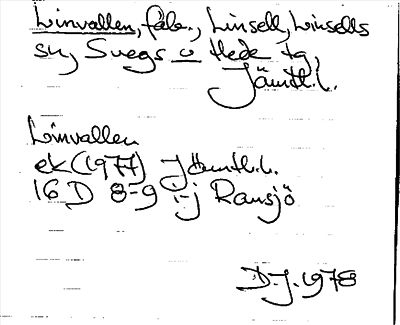 Linvallen, fäb., Linsell, Linsells
sn, Svegs o Hede tg,
Jämtl.l.
Linvallen
ek (1977) Jämtl.l.
16 D 8-9 i-j Ransjö
D.J. 1978